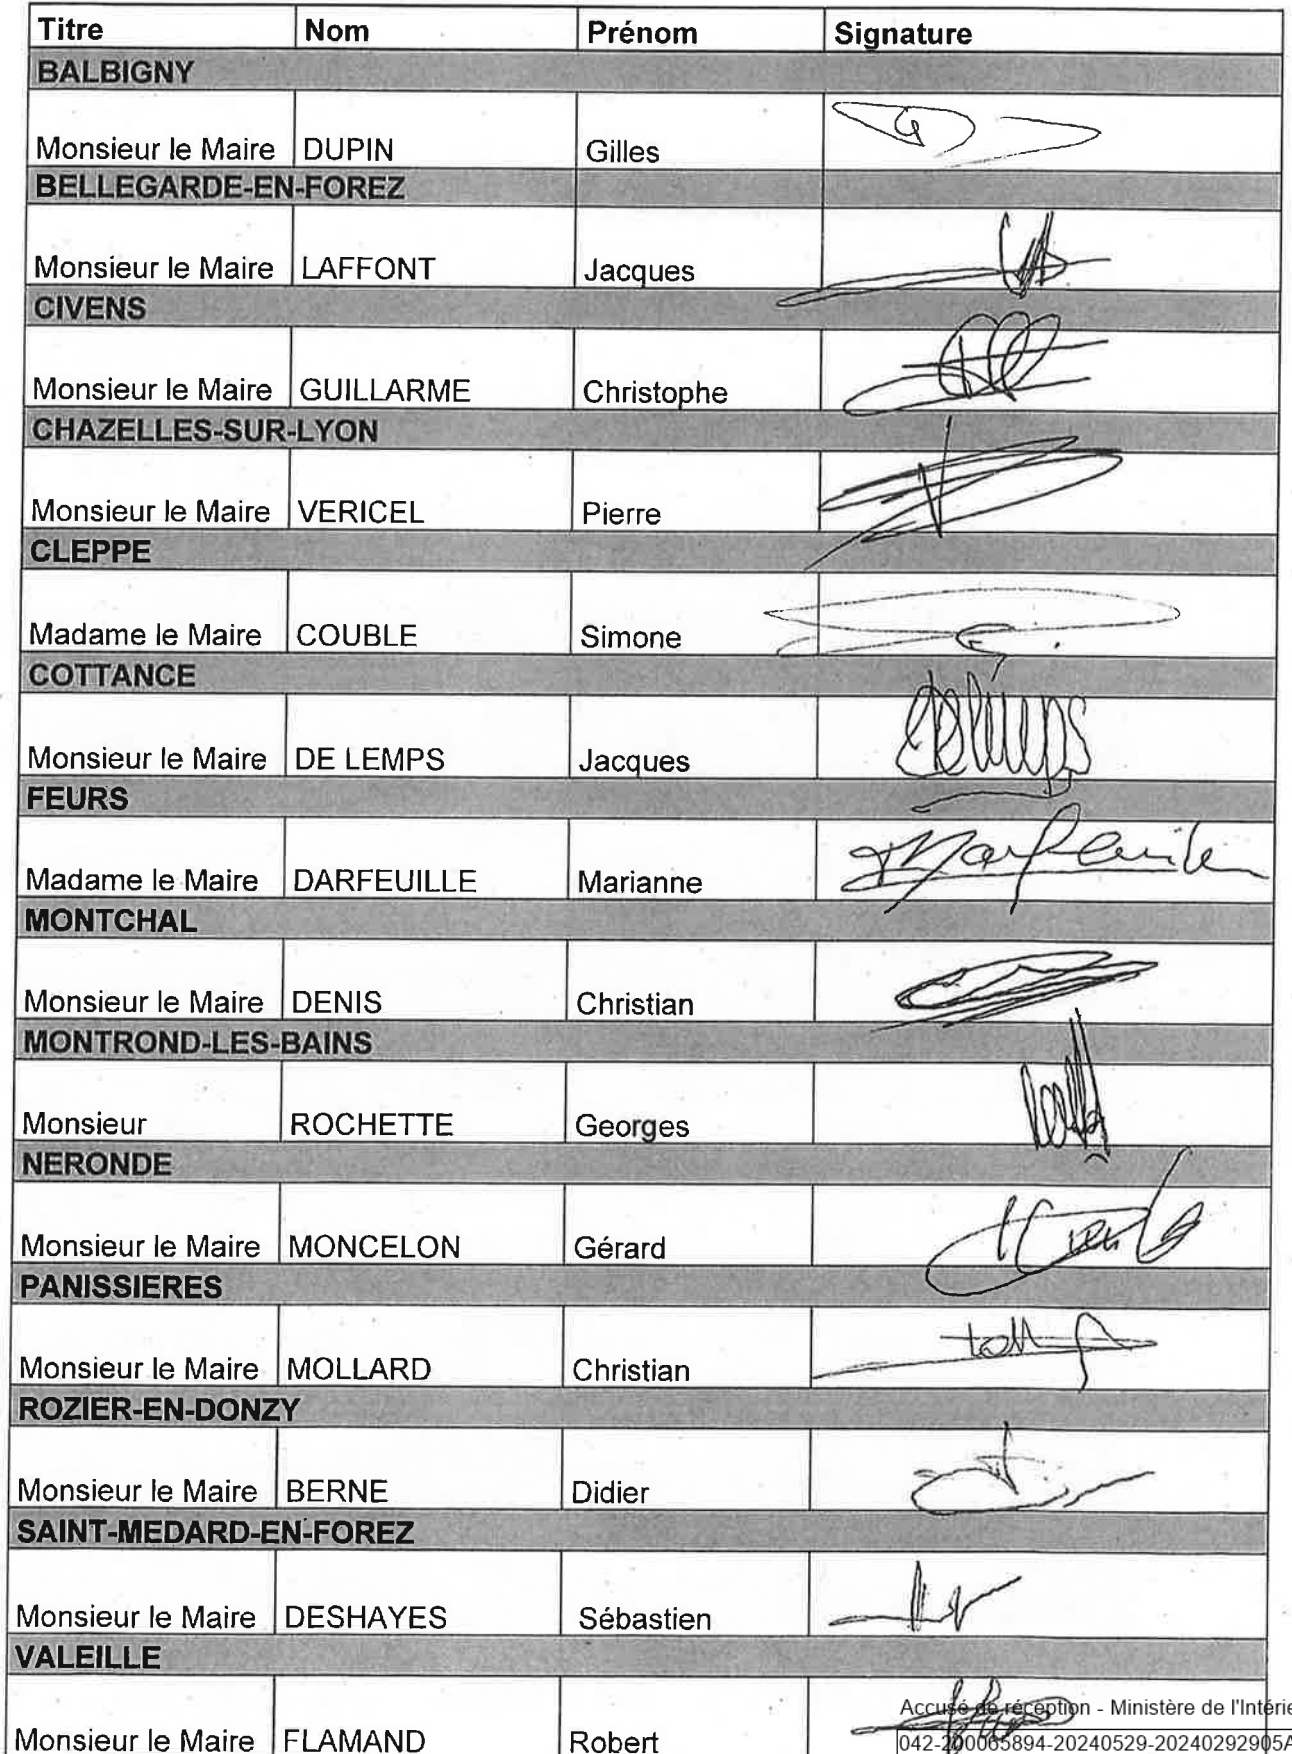 Titre Nom Prénom Signature
BALBIGNY
Monsieur le Maire DUPIN Gilles
BELLEGARDE-EN-FOREZ
Monsieur le Maire LAFFONT Jacques
CIVENS
Monsieur le Maire GUILLARME Christophe
CHAZELLES-SUR-LYON
Monsieur le Maire VERICEL Pierre
CLEPPE
Madame le Maire COUBLE Simone
COTTANCE
Monsieur le Maire DE LEMPS Jacques
FEURS
Madame le Maire DARFEUILLE Marianne
MONTCHAL
Monsieur le Maire DENIS Christian
MONTROND-LES-BAINS
Monsieur ROCHETTE Georges
NERONDE
Monsieur le Maire MONCELON Gérard
PANISSIERES
Monsieur le Maire MOLLARD Christian
ROZIER-EN-DONZY
Monsieur le Maire BERNE Didier
SAINT-MEDARD-EN-FOREZ
Monsieur le Maire DESHAYES Sébastien
VALEILLE
Accusé de réception - Ministère de l'Intérie
Monsieur le Maire FLAMAND Robert
042-200065894-20240529-20240292905A